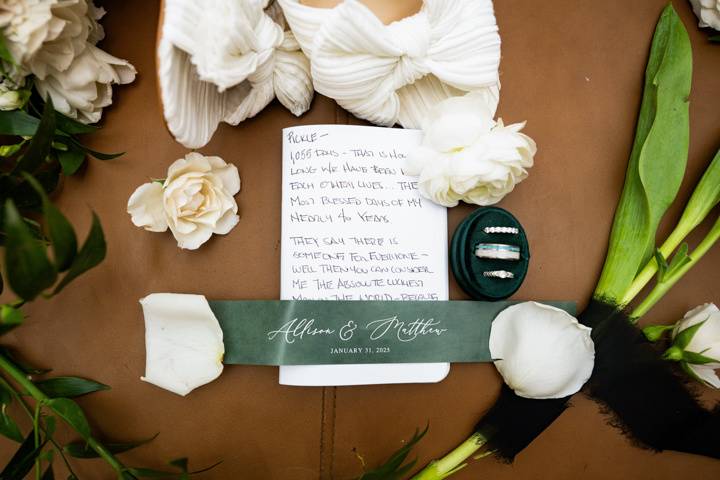 PICKLE —
1,055 DAYS — THAT IS HOW
LONG WE HAVE BEEN
EACH OTHERS LIVES... THE
MOST BLESSED DAYS OF MY
NEARLY 40 YEARS.
THEY SAY THERE IS
SOMEONE FOR EVERYONE —
WELL THEN YOU CAN CONSIDER
ME THE ABSOLUTE LUCKIEST
MAN IN THE WORLD — BECAUSE
Allison & Matthew
JANUARY 31, 2025